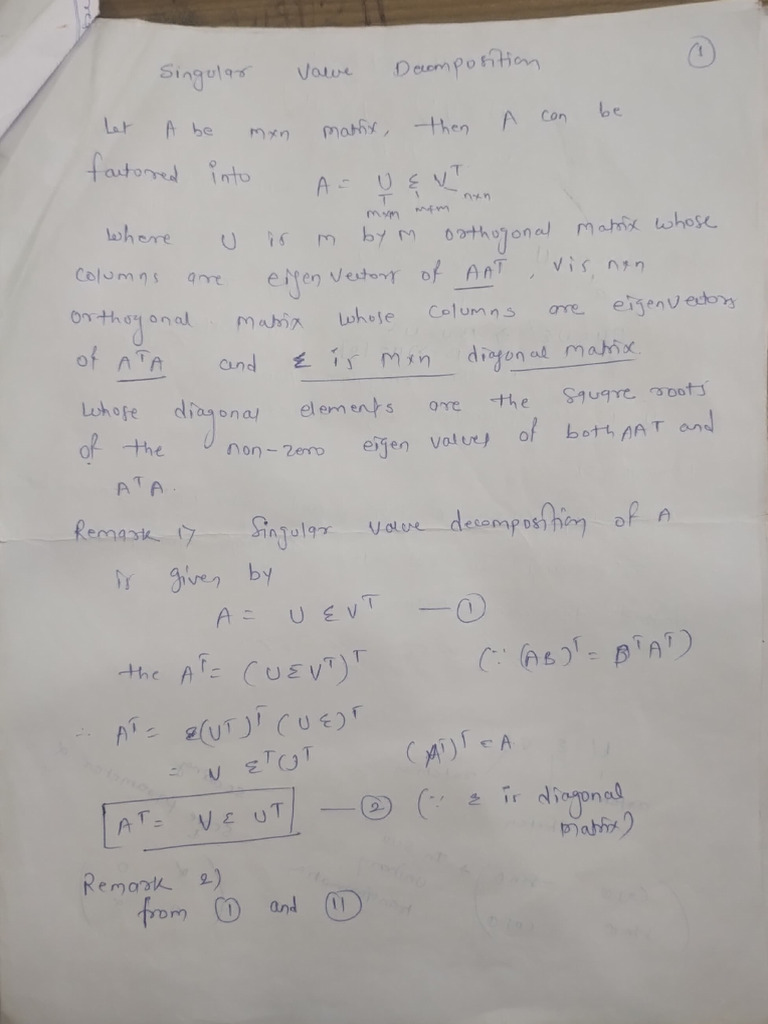 ①
Singular Value Decomposition
Let A be m×n matrix, then A can be
factored into A = U Σ V^T
m×m m×m n×n
Where U is m by m orthogonal matrix whose
columns are eigen vectors of AA^T, V is n×n
orthogonal matrix whose columns are eigenvectors
of A^TA and Σ is m×n diagonal matrix.
Whose diagonal elements are the square roots
of the non-zero eigen values of both AA^T and
A^TA.
Remark 1) Singular value decomposition of A
is given by
A = U Σ V^T — ①
the A^T = (U Σ V^T)^T (∵ (AB)^T = B^T A^T)
∴ A^T = (U^T)^T (U Σ)^T
= V Σ^T U^T (A^T)^T = A
A^T = V Σ U^T — ② (∵ Σ is diagonal
matrix)
Remark 2)
from ① and ⑪